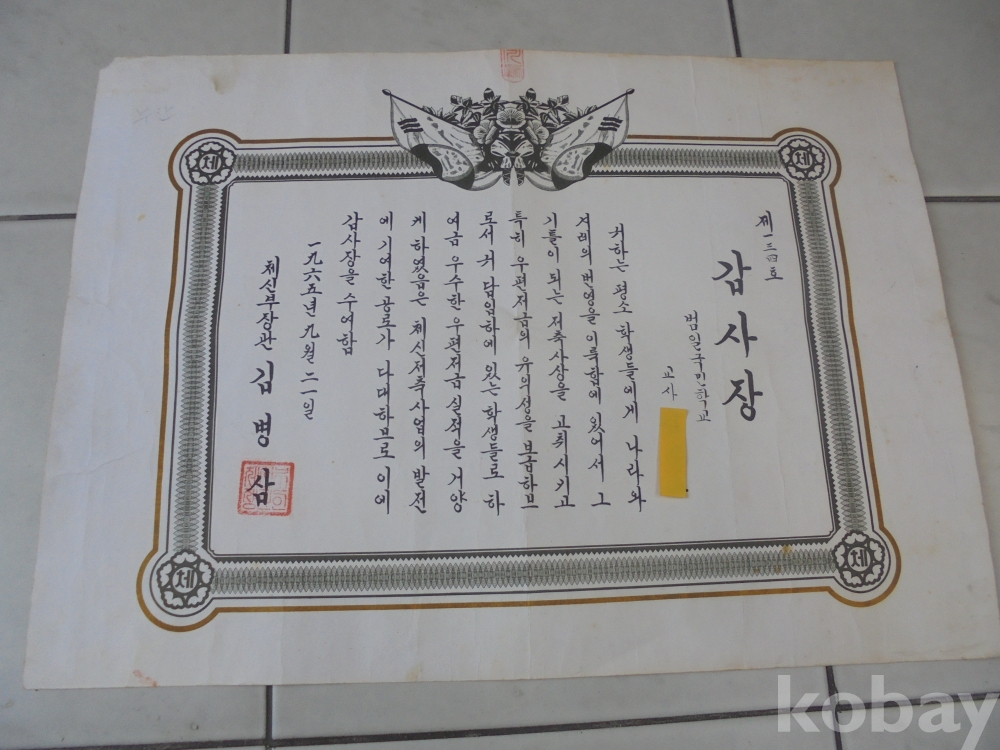 제一三四호
감사장
범일국민학교
교사
귀하는 평소 학생들에게 나라와
겨레의 번영을 이룩함에 있어서 그
기틀이 되는 저축사상을 고취시키고
특히 우편저금의 유의성을 보급하므
로서 귀 담임하에 있는 학생들로 하
여금 우수한 우편저금 실적을 거양
케 하였음은 체신저축사업의 발전
에 기여한 공로가 다대하므로 이에
감사장을 수여함
一九六五년 九월 二一일
체신부장관 김병삼
체
체
체
체
kobay